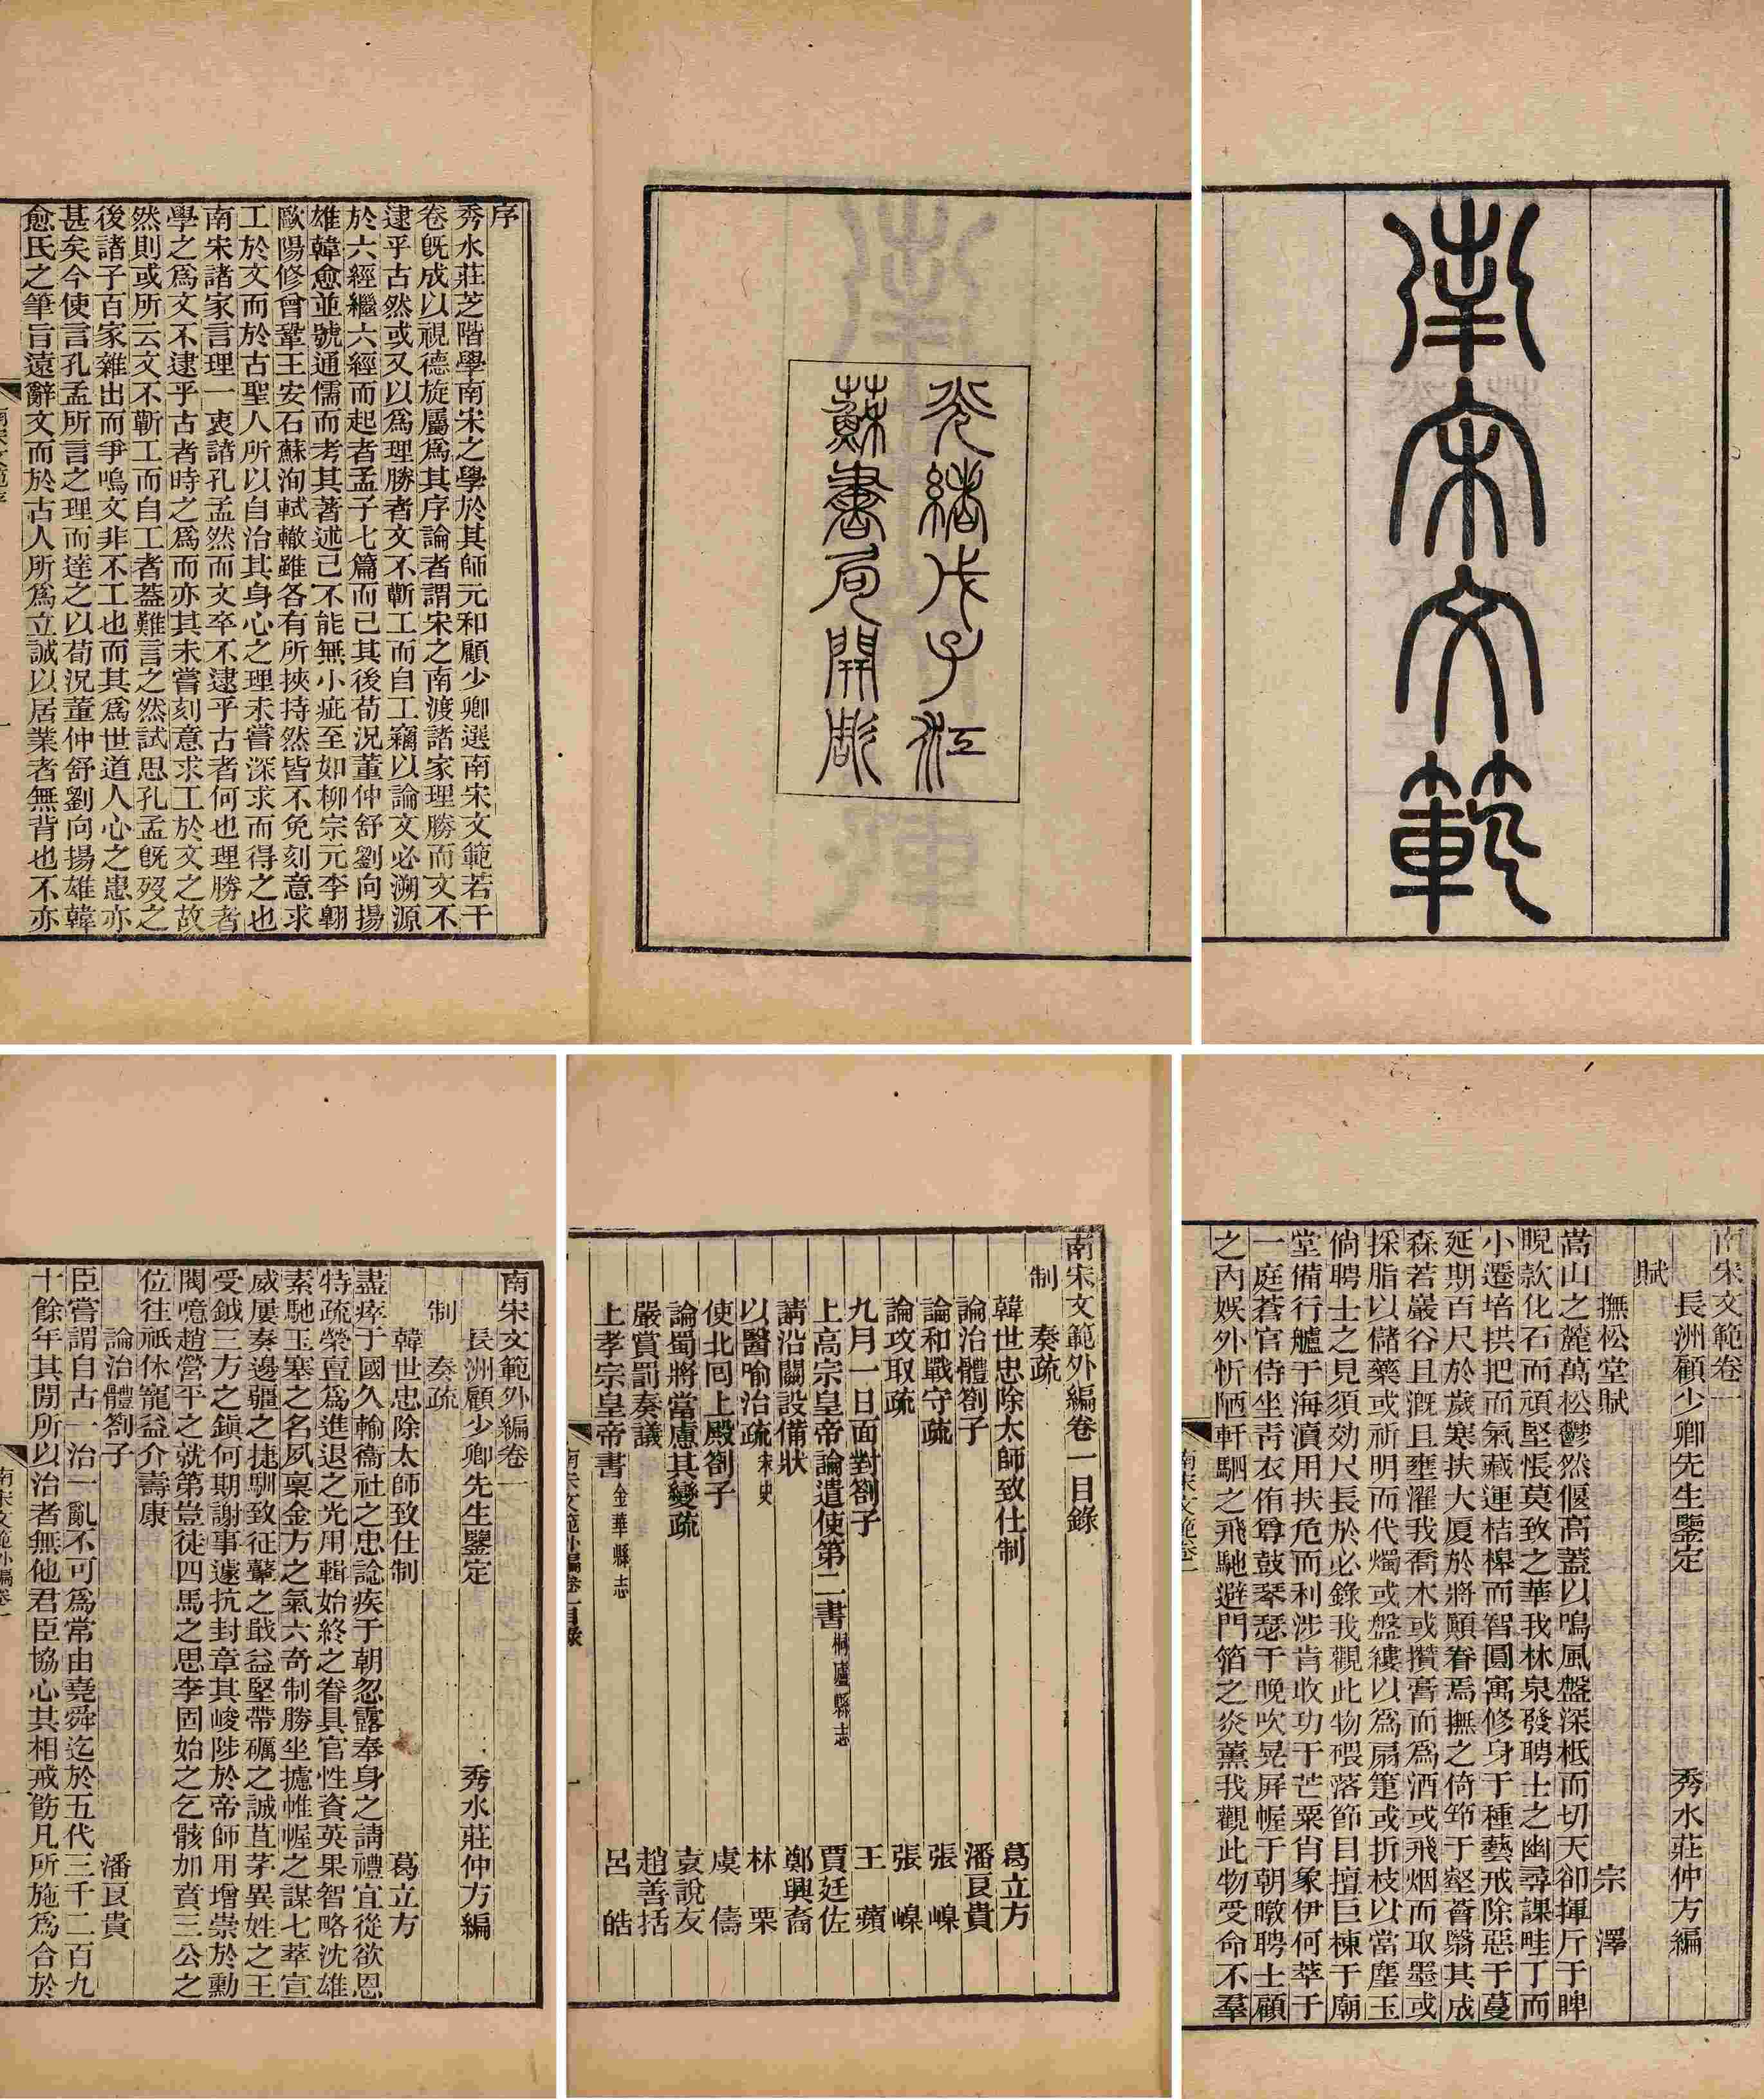 南宋文範
光緒戊子江
蘇書局開雕
序
秀水莊芝階學南宋之學於其師元和顧少卿選南宋文範若干
卷既成以視德旋屬爲其序論者謂宋之南渡諸家理勝而文不
逮乎古然或又以爲理勝者文不蘄工而自工竊以論文必溯源
於六經繼六經而起者孟子七篇而已其後荀況董仲舒劉向揚
雄韓愈並號通儒而考其著述已不能無小疵至如柳宗元李翱
歐陽修曾鞏王安石蘇洵軾轍雖各有所挾持然皆不免刻意求
工於文而於古聖人所以自治其身心之理未嘗深求而得之也
南宋諸家言理一衷諸孔孟然而文卒不逮乎古者何也理勝者
學之爲文不逮乎古者時之爲而亦其未嘗刻意求工於文之故
然則或所云文不蘄工而自工者蓋難言之然試思孔孟既歿之
後諸子百家雜出而爭鳴文非不工也而其爲世道人心之患亦
甚矣今使言孔孟所言之理而達之以荀況董仲舒劉向揚雄韓
愈氏之筆旨遠辭文而於古人所爲立誠以居業者無背也不亦
南宋文範序
一
南宋文範卷一
長洲顧少卿先生鑒定　秀水莊仲方編
賦
撫松堂賦　宗澤
嵩山之麓萬松鬱然偃高蓋以鳴風盤深柢而切天卻揮斤于睥
睨款化石而頑堅悵莫致之華我林泉發聘士之幽尋課畦丁而
小遷培拱把而氣藏運桔槔而智圓寓修身于種藝戒除惡于蔓
延期百尺於歲寒扶大厦於將顛眷焉撫之倚筇于壑薈翳其成
森若巖谷且溉且壅濯我喬木或攢膏而爲酒或飛烟而取墨或
採脂以儲藥或祈明而代燭或盤縷以爲扇箑或折枝以當麈玉
倘聘士之見須効尺長於必錄我觀此物磈落節目擅巨棟于廟
堂備行艫于海瀆用扶危而利涉肯收功于芒粟肖象伊何萃于
一庭蒼官侍坐青衣侑尊鼓琴瑟于晚吹晃屏幄于朝暾聘士顧
之內娛外忻陋軒駟之飛馳避門箔之炎薰我觀此物受命不羣
南宋文範卷一
一
南宋文範外編卷一目錄
制　奏疏
韓世忠除太師致仕制　葛立方
論治體劄子　潘良貴
論和戰守疏　張嵲
論攻取疏　張嵲
九月一日面對劄子　王蘋
上高宗皇帝論遣使第二書桐廬縣志　賈廷佐
請沿關設備狀　鄭興裔
以醫喻治疏宋史　林栗
使北回上殿劄子　虞儔
論蜀將當慮其變疏　袁說友
嚴賞罰奏議　趙善括
上孝宗皇帝書金華縣志　呂皓
南宋文範外編卷一目錄
一
南宋文範外編卷一
長洲顧少卿先生鑒定　秀水莊仲方編
制　奏疏
韓世忠除太師致仕制　葛立方
盡瘁于國久輸衞社之忠諗疾于朝忽露奉身之請禮宜從欲恩
特疏榮亶爲進退之光用輯始終之眷具官性資英果智略沈雄
素馳玉塞之名夙稟金方之氣六奇制勝坐攄帷幄之謀七萃宣
威屢奏邊疆之捷馴致征鼙之戢益堅帶礪之誠苴茅異姓之王
受鉞三方之鎮何期謝事遽抗封章其峻陟於帝師用增崇於勳
閥噫趙營平之就第豈徒四馬之思李固始之乞骸加賁三公之
位往祗休寵益介壽康
論治體劄子　潘良貴
臣嘗謂自古一治一亂不可爲常由堯舜迄於五代三千二百九
十餘年其閒所以治者無他君臣協心共相戒飭凡所施爲合於
南宋文範外編卷一
一